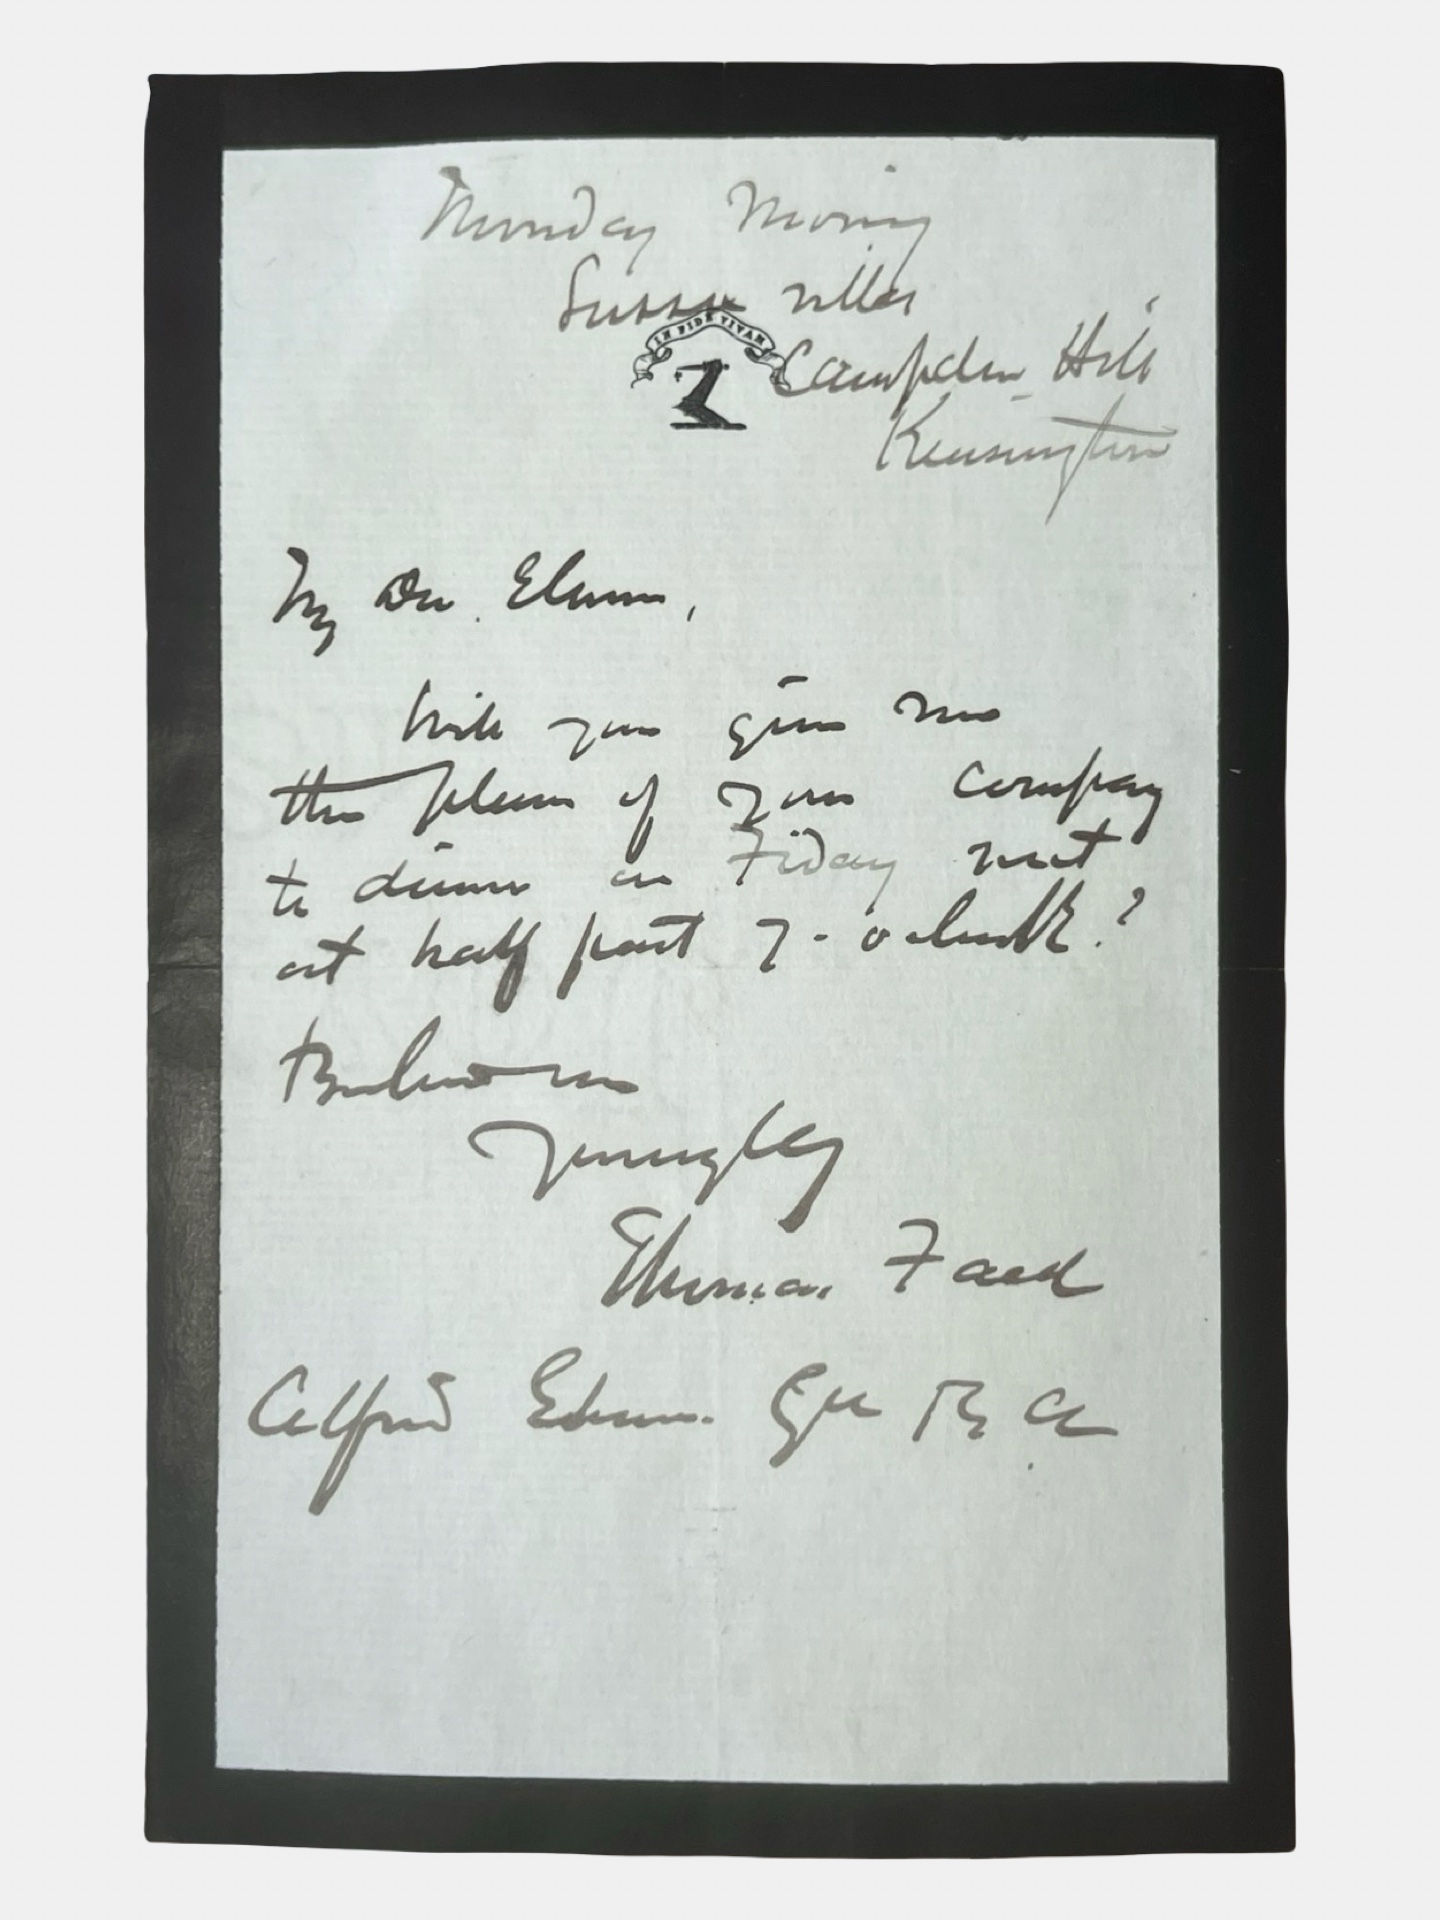 Monday Morning
Sussex Villa
IN FIDE VIVAM
Campden Hill
Kensington
My Dear Elmore,
Will you give me
the pleasure of your company
to dinner on Friday next
at half past 7 - o'clock?
Believe me
Yours truly
Thomas Faed
Alfred Elmore Esqre R A